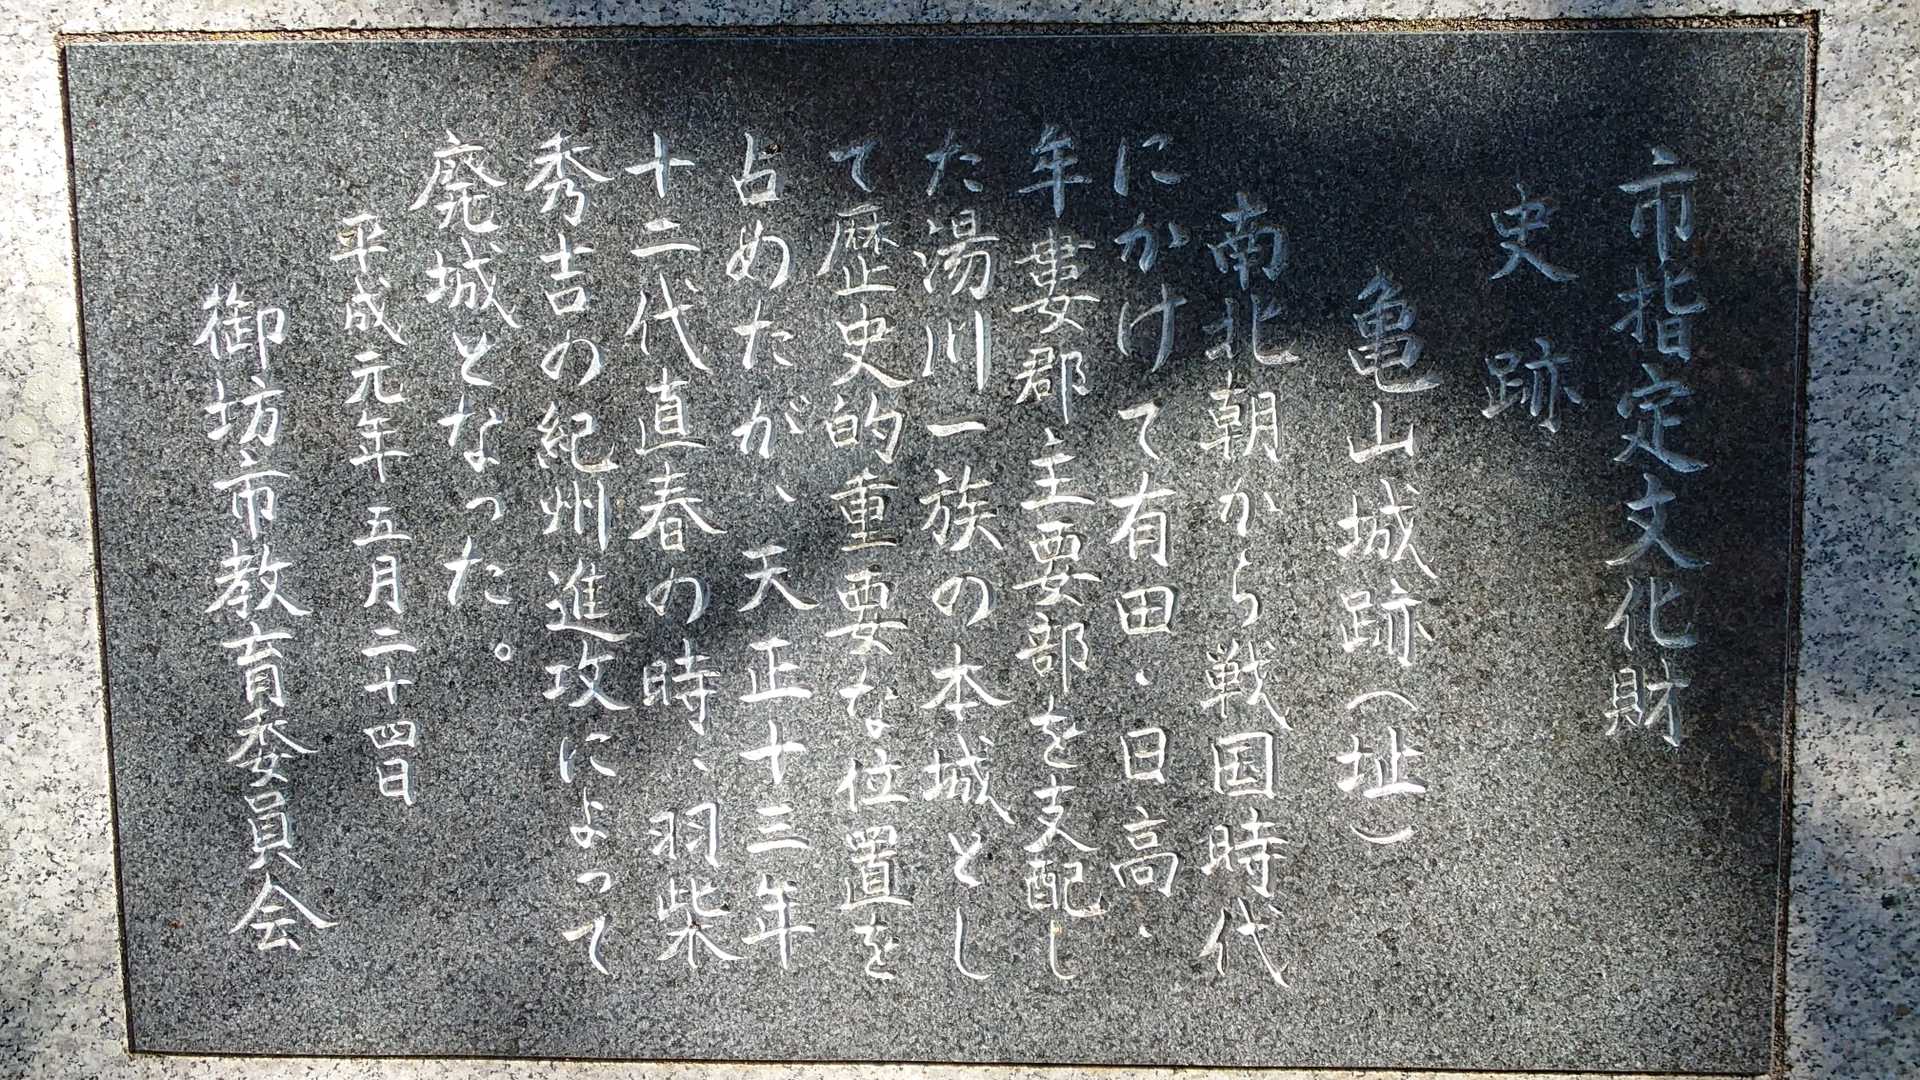 市指定文化財
史跡
亀山城跡(址)
南北朝から戦国時代
にかけて有田・日高・
牟婁郡主要部を支配し
た湯川一族の本城とし
て歴史的重要な位置を
占めたが、天正十三年
十二代直春の時、羽柴
秀吉の紀州進攻によって
廃城となった。
平成元年五月二十四日
御坊市教育委員会